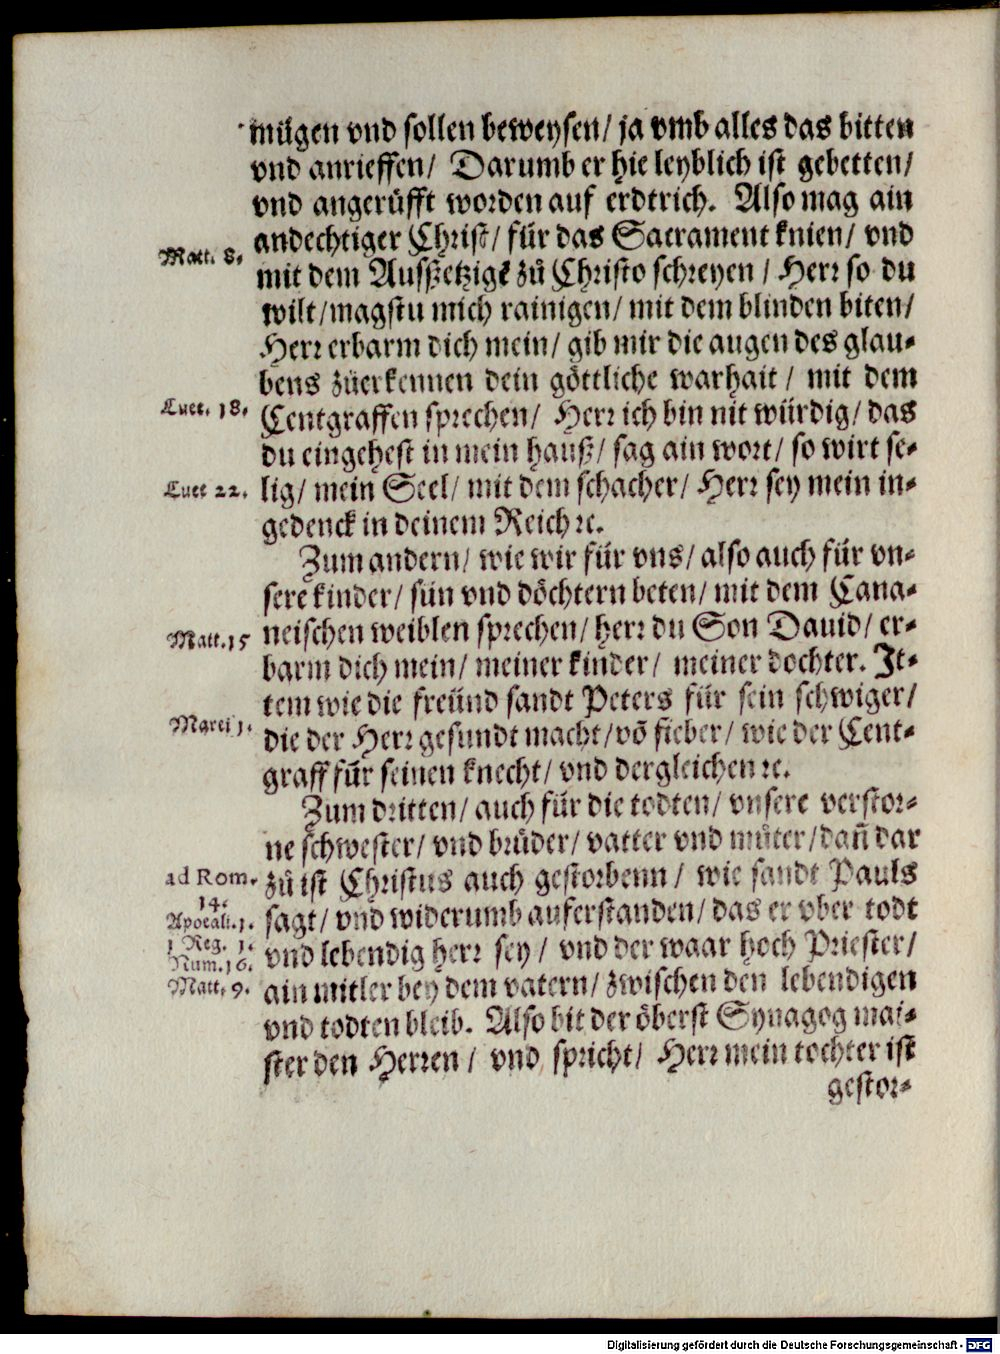 mügen vnd sollen beweysen/ ja vmb alles das bitten
vnd anrieffen/ Darumb er hie leyblich ist gebetten/
vnd angerüfft worden auf erdtrich. Also mag ain
andechtiger Christ/ für das Sacrament knien/ vnd
Matt. 8.
mit dem Aussetzigē zů Christo schreyen/ Herr so du
wilt/ magstu mich rainigen/ mit dem blinden biten/
Herr erbarm dich mein/ gib mir die augen des glau-
bens zůerkennen dein göttliche warhait/ mit dem
Luce. 18.
Centgraffen sprechen/ Herr ich bin nit würdig/ das
du eingehest in mein hauß/ sag ain wort/ so wirt se-
Luce 22.
lig/ mein Seel/ mit dem schacher/ Herr sey mein in-
gedenck in deinem Reich ꝛc.
Zum andern/ wie wir für vns/ also auch für vn-
sere kinder/ sün vnd döchtern beten/ mit dem Cana-
Matt. 15
neischen weiblen sprechen/ herr du Son Dauid/ er-
barm dich mein/ meiner kinder/ meiner dochter. It-
tem wie die freünd sandt Peters für sein schwiger/
Marci 1.
die der Herr gesundt macht/ võ fieber/ wie der Cent-
graff für seinen knecht/ vnd dergleichen ꝛc.
Zum dritten/ auch für die todten/ vnsere verstor-
ne schwester/ vnd brüder/ vatter vnd můter/ dañ dar
ad Rom.
14.
zů ist Christus auch gestorbenn/ wie sandt Pauls
Apocali. 1.
sagt/ vnd widerumb auferstanden/ das er vber todt
1 Reg. 1.
vnd lebendig herr sey/ vnd der waar hoch Priester/
Num. 16.
Matt. 9.
ain mitler bey dem vatern/ zwischen den lebendigen
vnd todten bleib. Also bit der öberst Synagog mai-
ster den Herren/ vnd spricht/ Herr mein tochter ist
gestor-
Digitalisierung gefördert durch die Deutsche Forschungsgemeinschaft - DFG